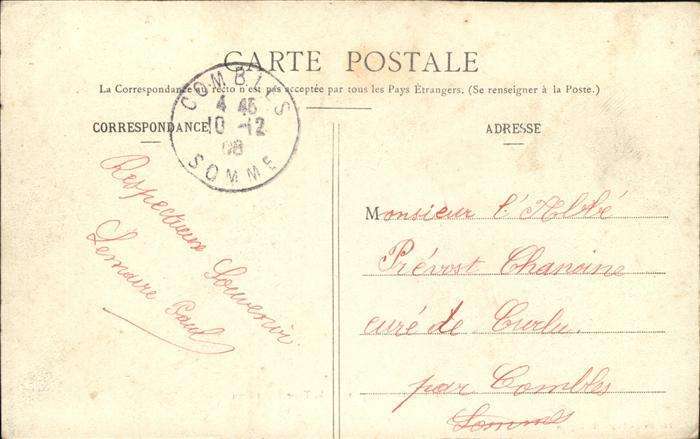 CARTE POSTALE
La Correspondance au recto n'est pas acceptée par tous les Pays Étrangers. (Se renseigner à la Poste.)
CORRESPONDANCE
ADRESSE
COMBLES
4 45
10 -12
08
SOMME
Respectueux Souvenir
Lemaire Paul
Monsieur l'Abbé
Prévost Chanoine
curé de Curlu.
par Combles
Somme